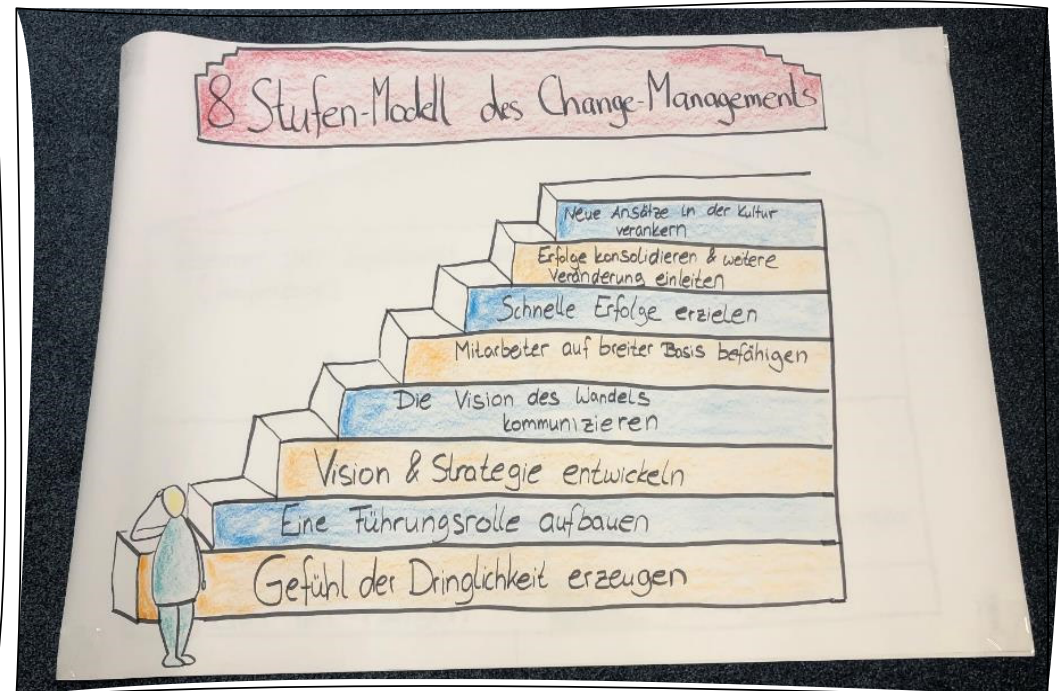 8 Stufen-Modell des Change-Managements
Neue Ansätze in der Kultur
verankern
Erfolge konsolidieren & weitere
Veränderung einleiten
Schnelle Erfolge erzielen
Mitarbeiter auf breiter Basis befähigen
Die Vision des Wandels
kommunizieren
Vision & Strategie entwickeln
Eine Führungsrolle aufbauen
Gefühl der Dringlichkeit erzeugen